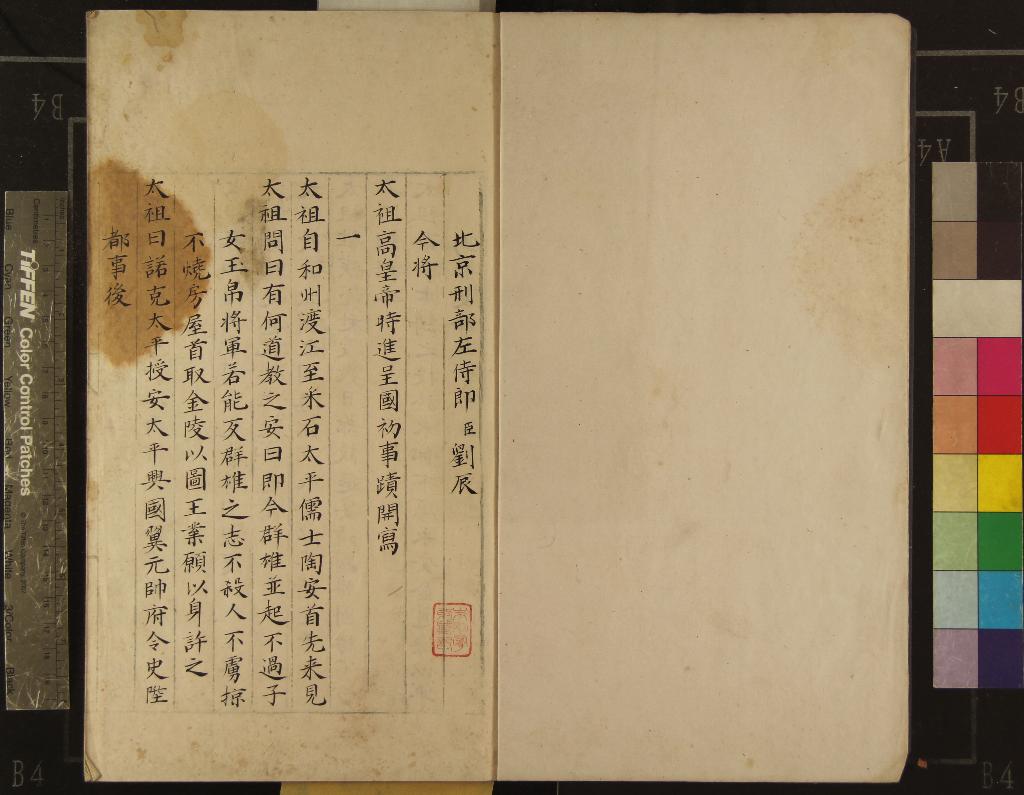 北京刑部左侍郎臣劉辰
今將
太祖高皇帝時進呈國初事蹟開寫
一
太祖自和州渡江至采石太平儒士陶安首先来見
太祖問曰有何道教之安曰即今群雄並起不過子
女玉帛將軍若能反群雄之志不殺人不虜掠
不燒房屋首取金陵以圖王業願以身許之
太祖曰諾克太平授安太平興國翼元帥府令史陞
都事後
B4
B4
A4
B4
B4
TIFFEN Color Control Patches
Blue
Cyan
Green
Yellow
Red
Magenta
White
3/Color
Black